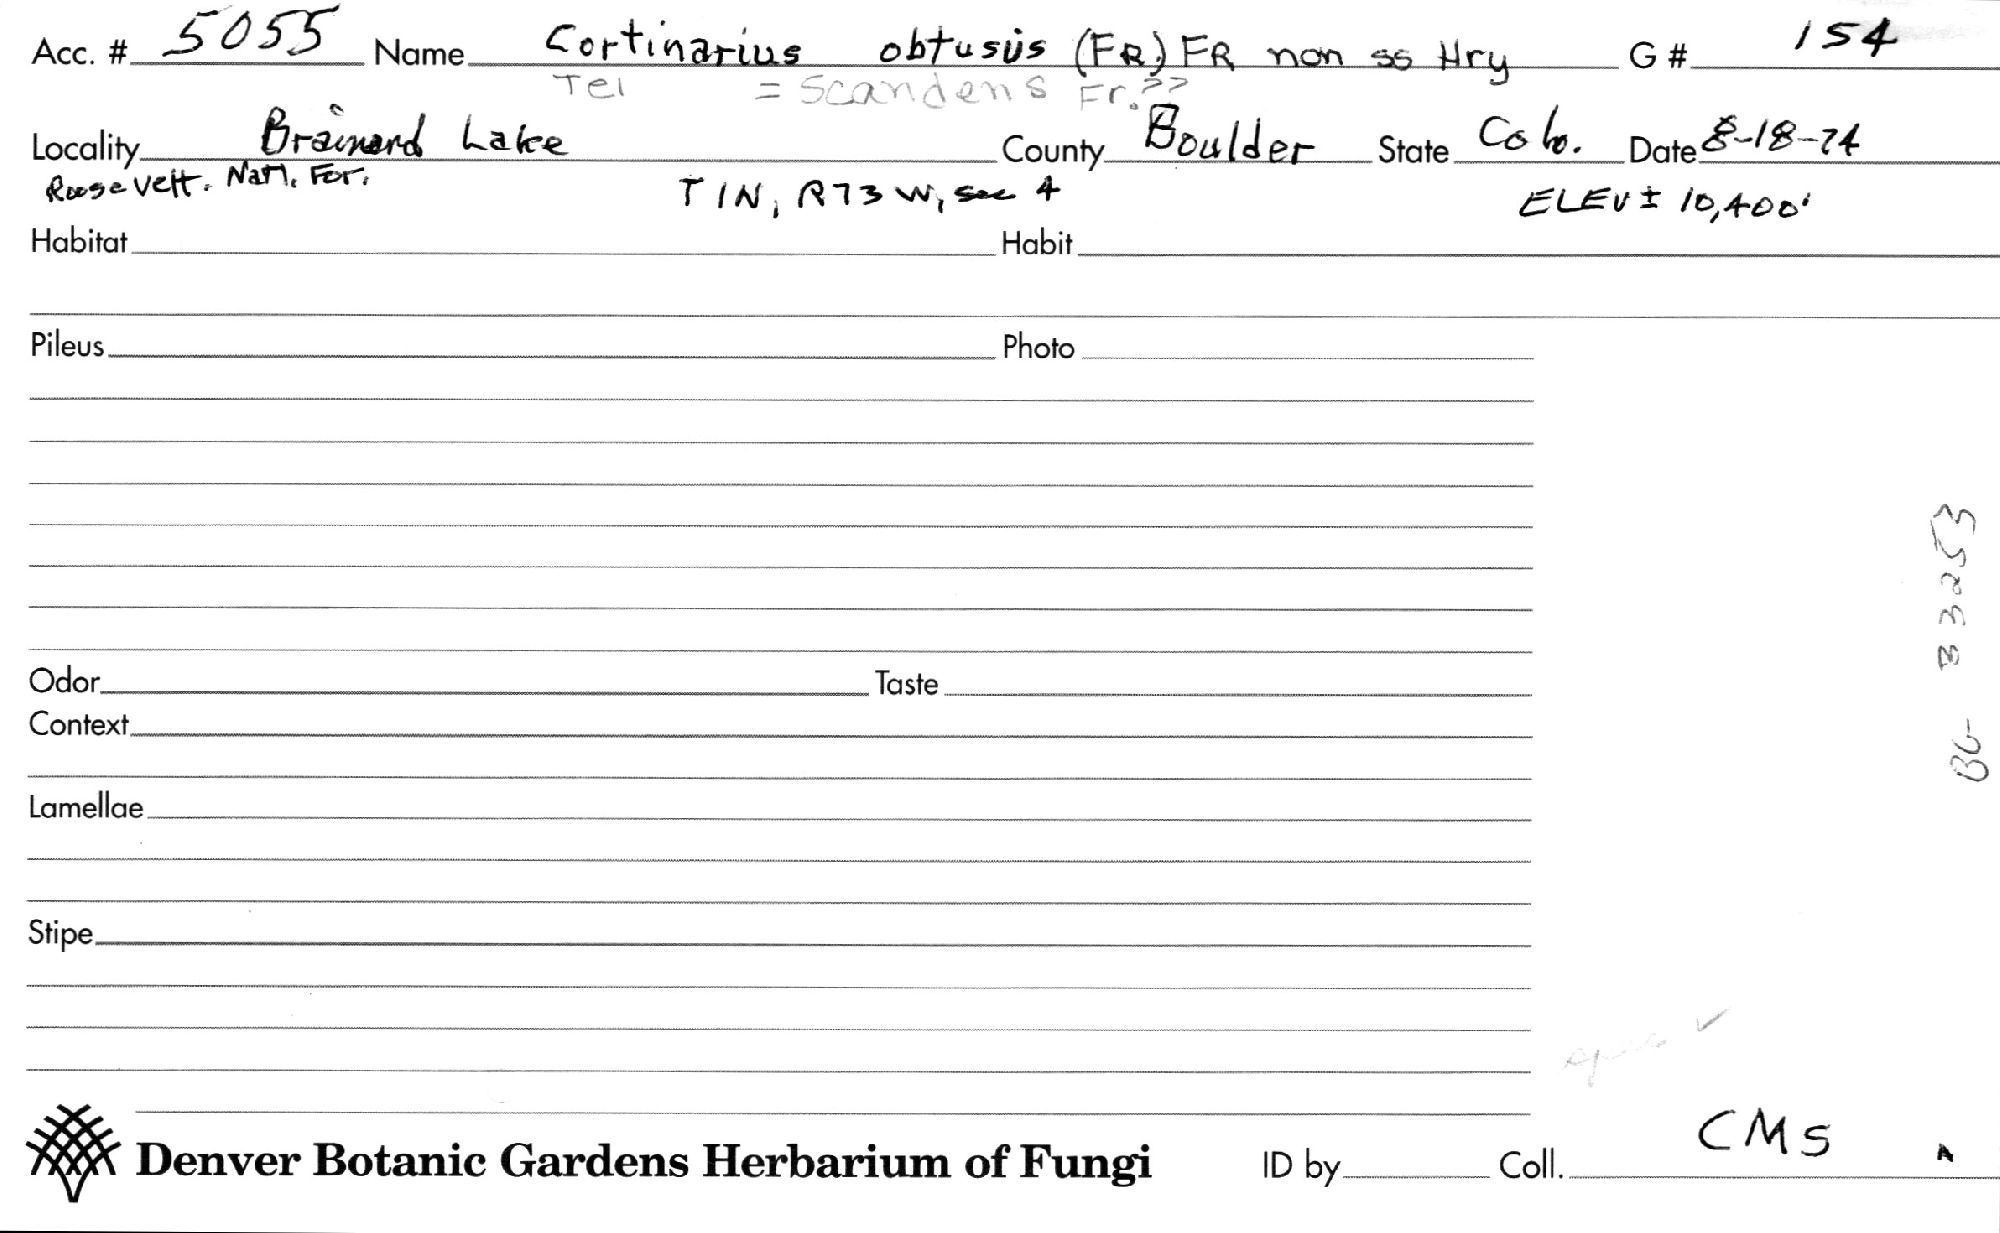 Acc. # 5055 Name Cortinarius obtusus (FR.) FR non ss Hry G # 154
Tel = Scandens Fr.??
Locality Brainard Lake County Boulder State Colo. Date 8-18-74
Roosevelt. Natl. For. T1N, R73W, sec 4 ELEV ± 10,400'
Habitat Habit
Pileus Photo
Odor Taste
Context
Lamellae
Stipe
Denver Botanic Gardens Herbarium of Fungi ID by Coll. CMS
A